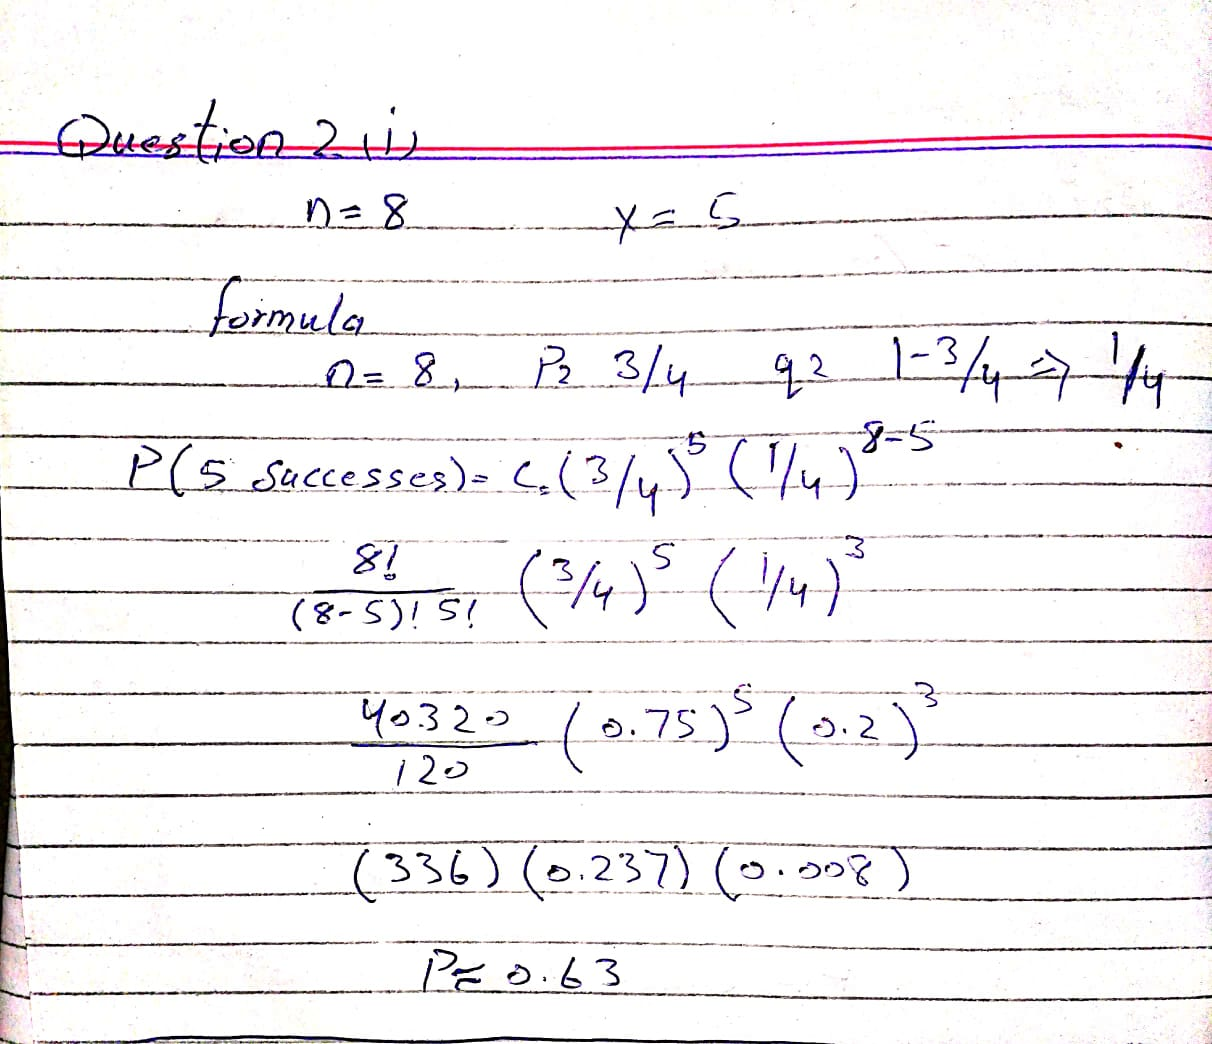 Question 2 (i)
n = 8 x = 5
formula
n = 8, P = 3/4 q = 1-3/4 => 1/4
P(5 Successes) = C₅(3/4)⁵ (1/4)⁸⁻⁵
8! / (8-5)! 5! (3/4)⁵ (1/4)³
40320 / 120 (0.75)⁵ (0.2)³
(336) (0.237) (0.008)
P = 0.63